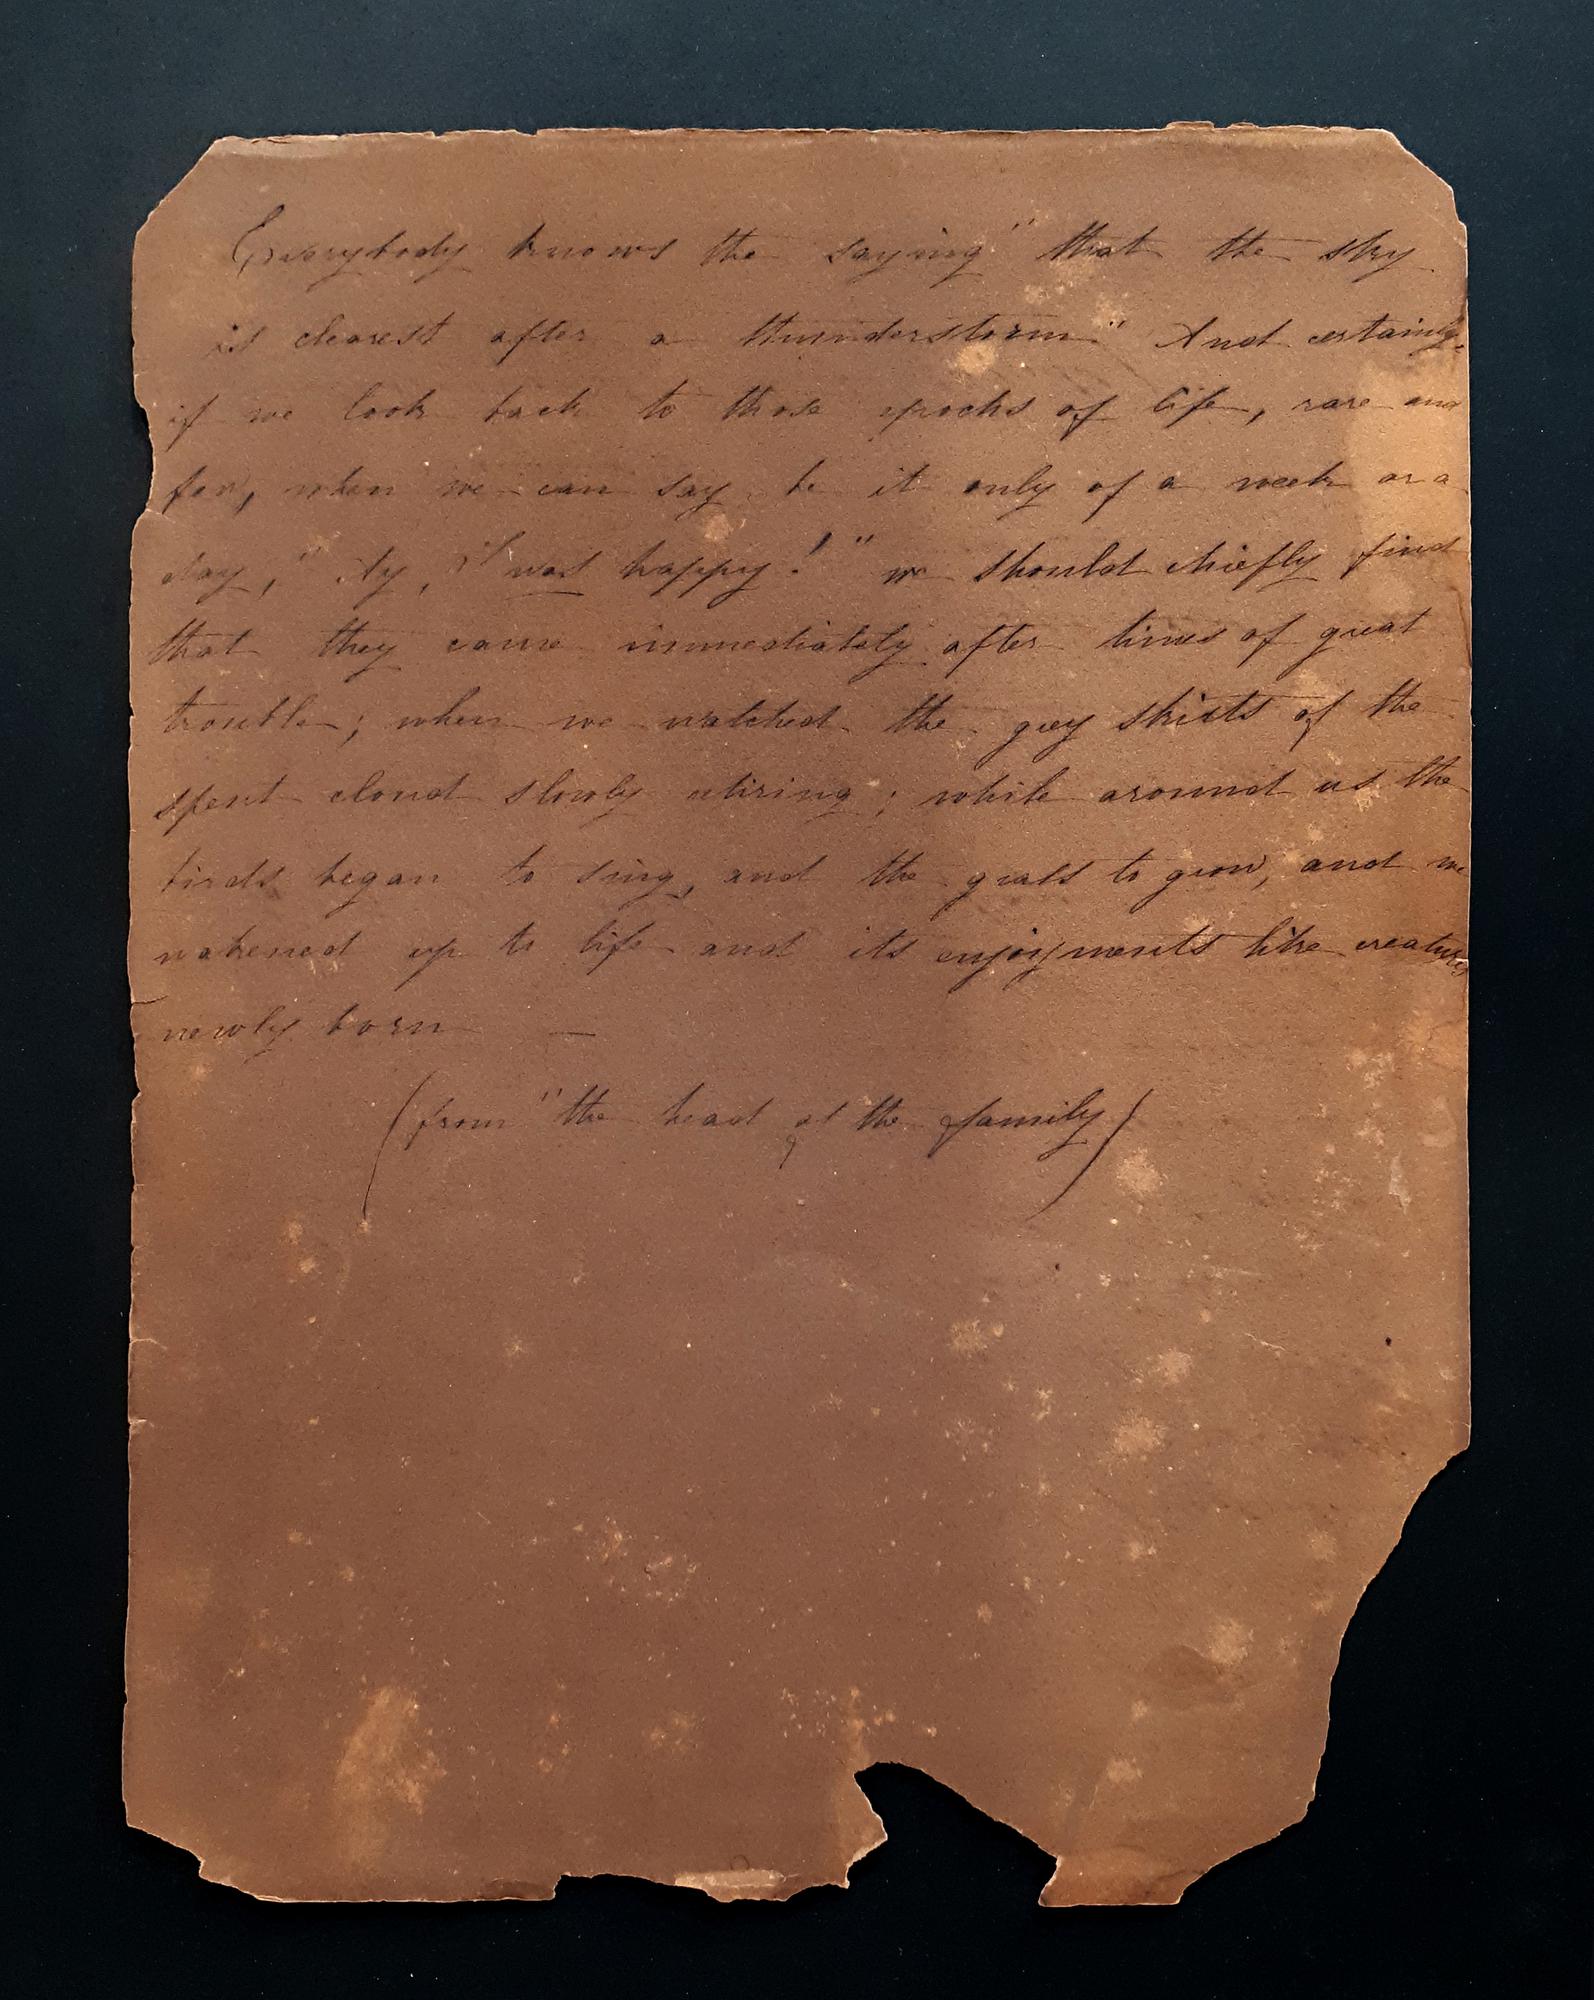 Everybody knows the saying "that the sky
is clearest after a thunderstorm." And certainly
if we look back to those epochs of life, rare and
few, when we can say be it only of a week or a
day," Ay, "I was happy!" we should chiefly find
that they came immediately after times of great
trouble; when we watched the grey skirts of the
spent cloud slowly retiring; while around us the
birds began to sing, and the grass to grow, and we
wakened up to life and its enjoyments like creatures
newly born —
(from "the head of the family)